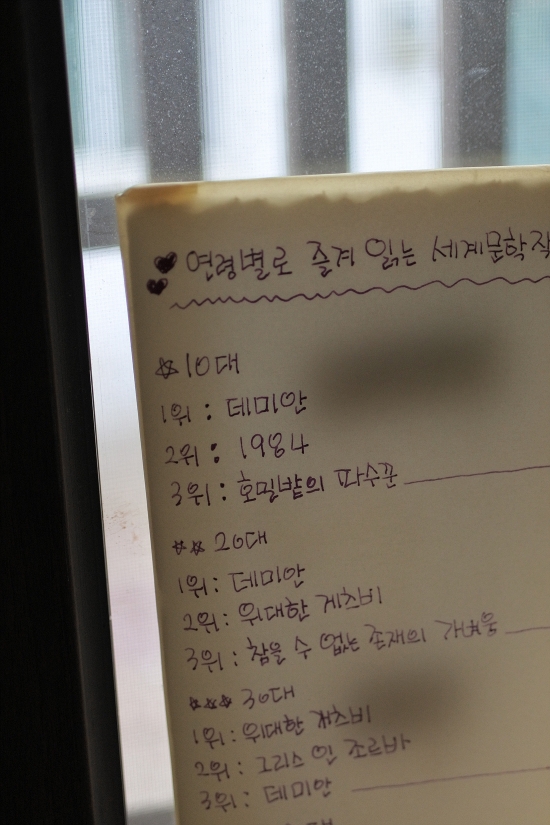 연령별로 즐겨 읽는 세계문학작
10대
1위 : 데미안
2위 : 1984
3위 : 호밀밭의 파수꾼
20대
1위 : 데미안
2위 : 위대한 개츠비
3위 : 참을 수 없는 존재의 가벼움
30대
1위 : 위대한 개츠비
2위 : 그리스인 조르바
3위 : 데미안